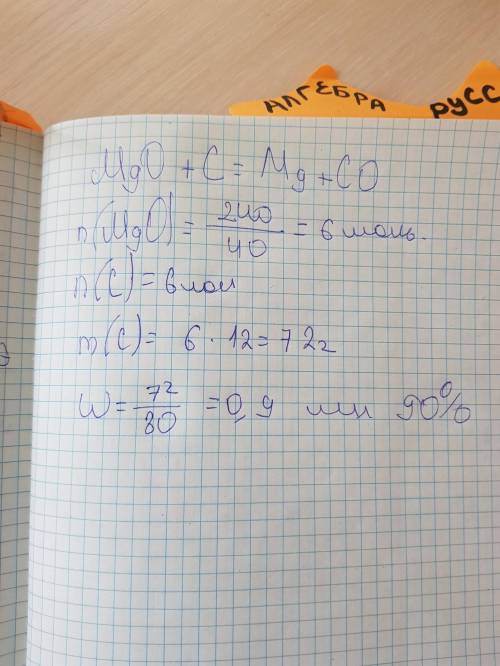 АЛГЕБРА
РУСС
MgO + C = Mg + CO
n(MgO) = 240/40 = 6 моль.
n(C) = 6 мол
m(C) = 6 · 12 = 72 г
W = 72/80 = 0,9 или 90%